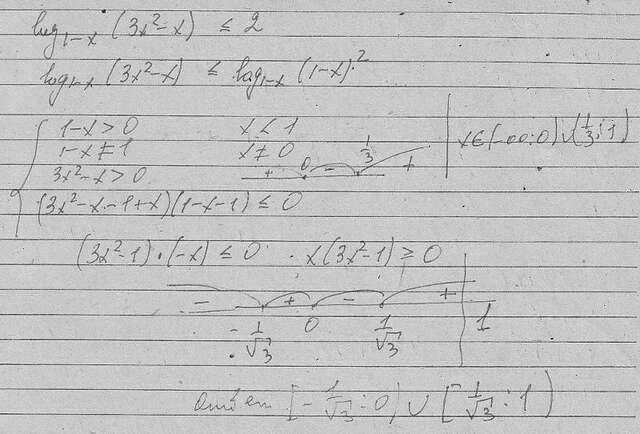 log₁₋ₓ (3x²-x) ≤ 2
log₁₋ₓ (3x²-x) ≤ log₁₋ₓ (1-x)²
{ 1-x > 0    x < 1
1-x ≠ 1    x ≠ 0
3x²-x > 0    + 0 - 1/3 +    x ∈ (-∞; 0) ∪ (1/3; 1)
(3x²-x-1+x)(1-x-1) ≤ 0
(3x²-1)·(-x) ≤ 0    x(3x²-1) ≥ 0
- + - +
-1/√3 0 1/√3 1
Ответ [-1/√3; 0) ∪ [1/√3; 1)